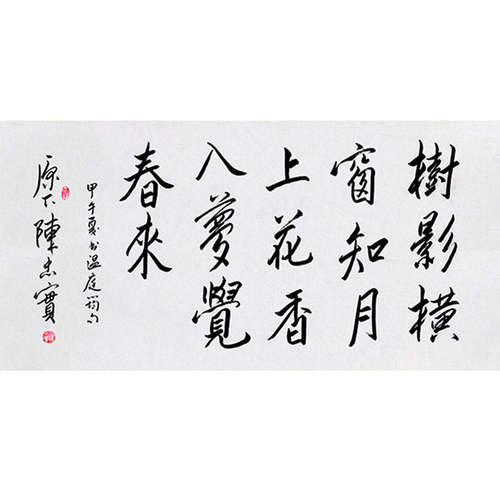 樹影橫
窗知月
上花香
入夢覺
春來
甲午夏書溫庭筠句
原下陳忠實